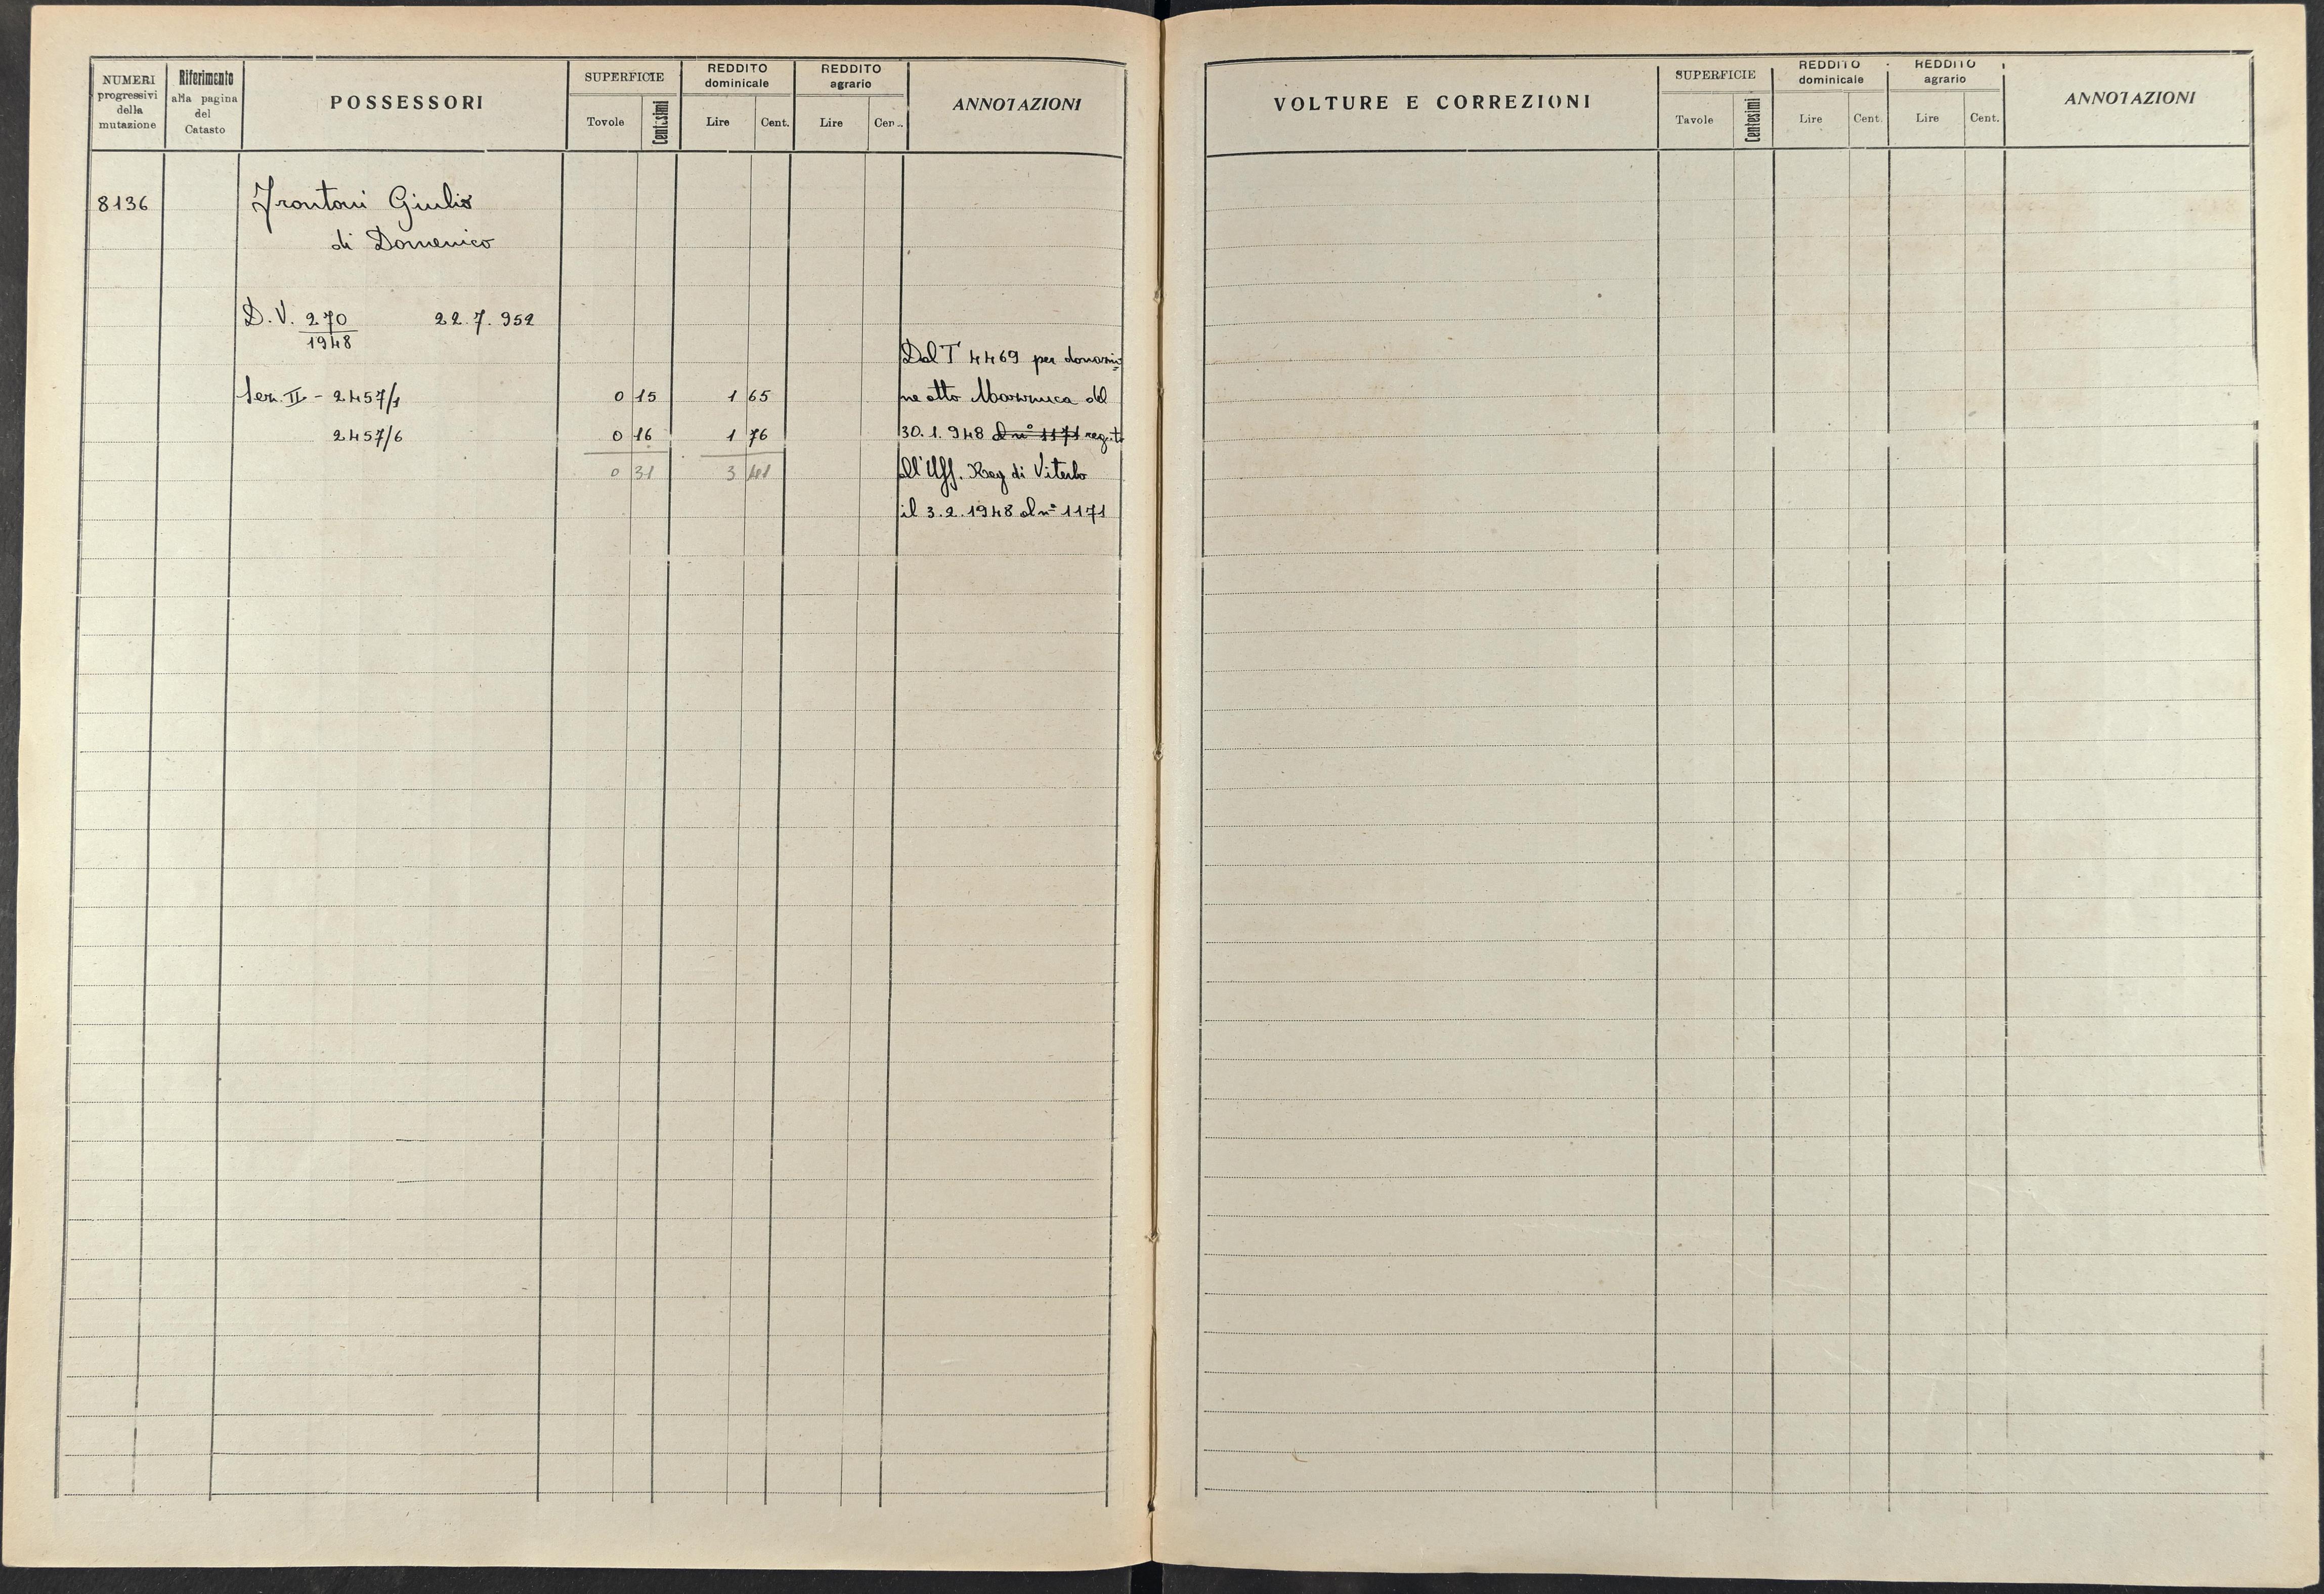 NUMERI progressivi della mutazione
Riferimento alla pagina del Catasto
POSSESSORI
SUPERFICIE
Tovole
Centesimi
REDDITO dominicale
Lire
Cent.
REDDITO agrario
Lire
Cen..
ANNOTAZIONI
8136
Frontoni Giulio
di Domenico
D. V. 270/1948 22.7.952
Dal T 4469 per donazio
Sez. II - 2457/1 0 15 1 65
ne atto Marmuca del
2457/6 0 16 1 76
30.1.948 al n° 1171 regist
0 31 3 41
all'Uff. Reg di Viterbo
il 3.2.1948 al n° 1171
VOLTURE E CORREZIONI
SUPERFICIE
Tavole
Centesimi
REDDITO dominicale
Lire
Cent.
REDDITO agrario
Lire
Cent.
ANNOTAZIONI